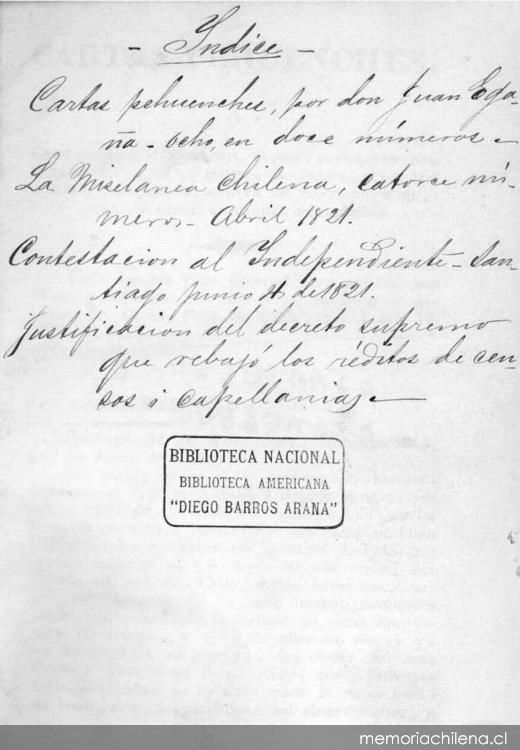 - Indice -
Cartas pehuenches, por don Juan Ega-
ña - ocho, en doce números -
La Miselanea chilena, catorce nú-
meros - Abril 1821.
Contestacion al Independiente - San-
tiago junio 4 de 1821.
Justificacion del decreto supremo
que rebajó los réditos de cen-
sos i capellanias -
BIBLIOTECA NACIONAL
BIBLIOTECA AMERICANA
"DIEGO BARROS ARANA"
memoriachilena.cl